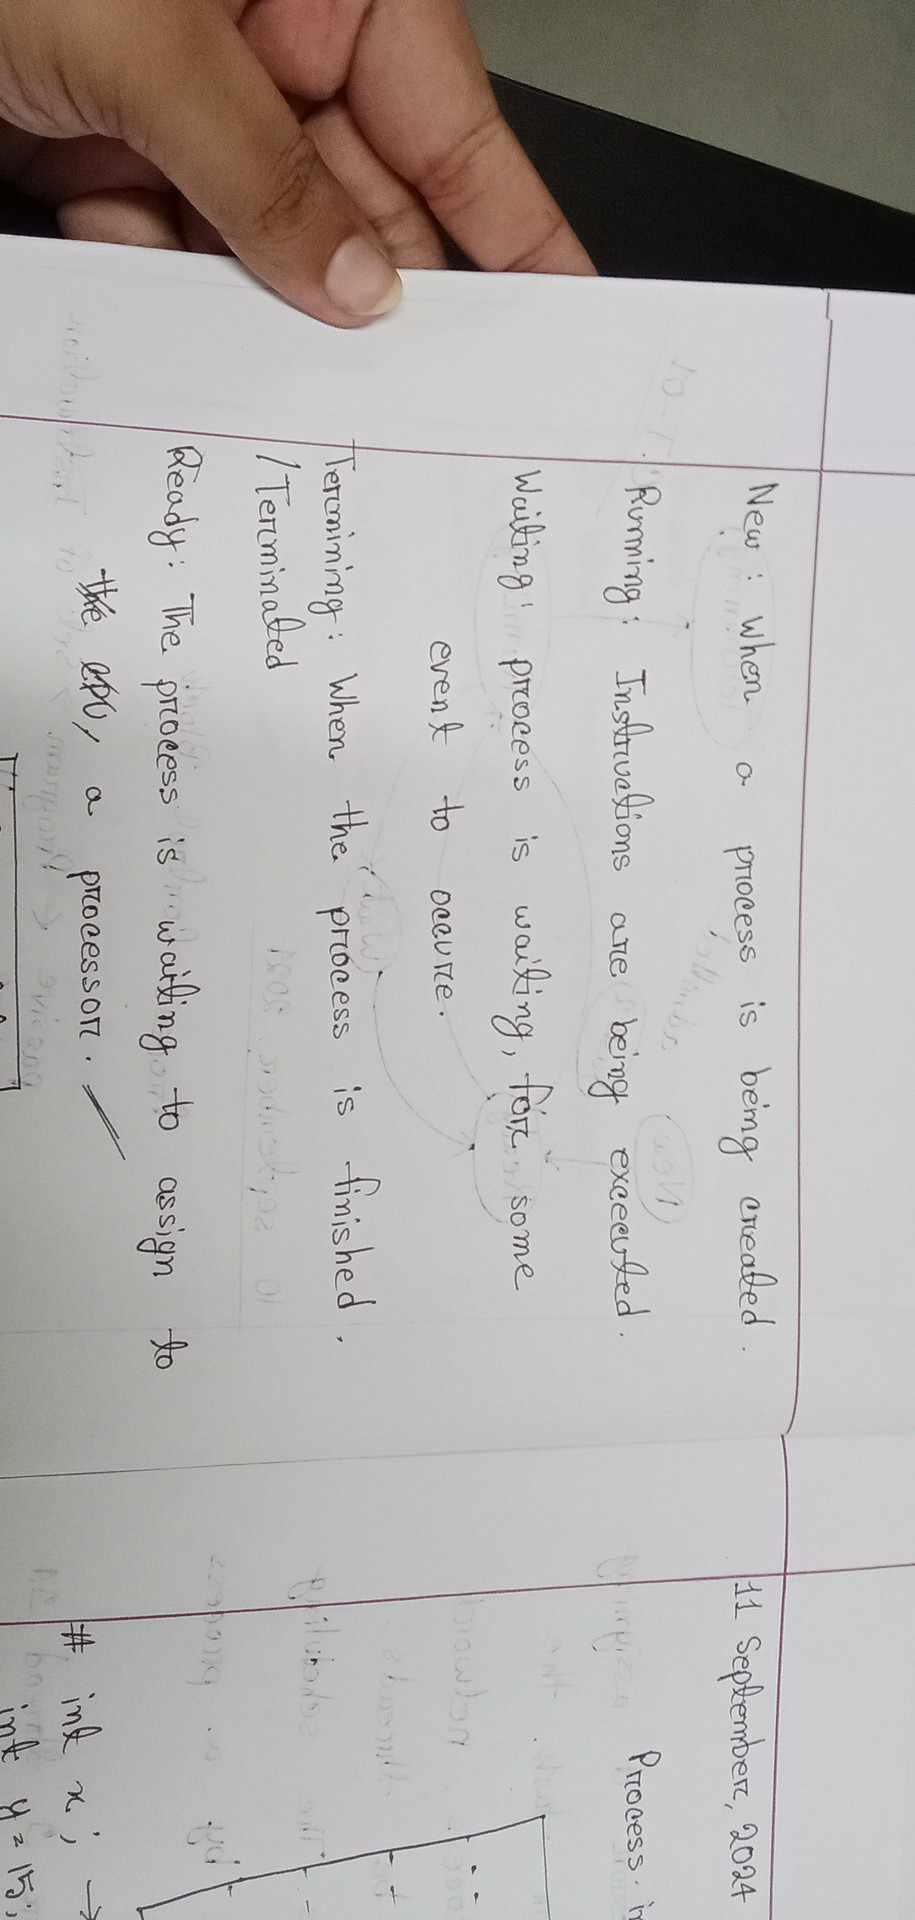 New: When a process is being created.
Running: Instructions are being excecuted.
Waiting: process is waiting, for some
event to occure.
Termining: When the process is finished.
/Terminated
Ready: The process is waiting to assign to
the CPU, a processor.
11 September, 2024
Process in
# int x; →
int y = 15;